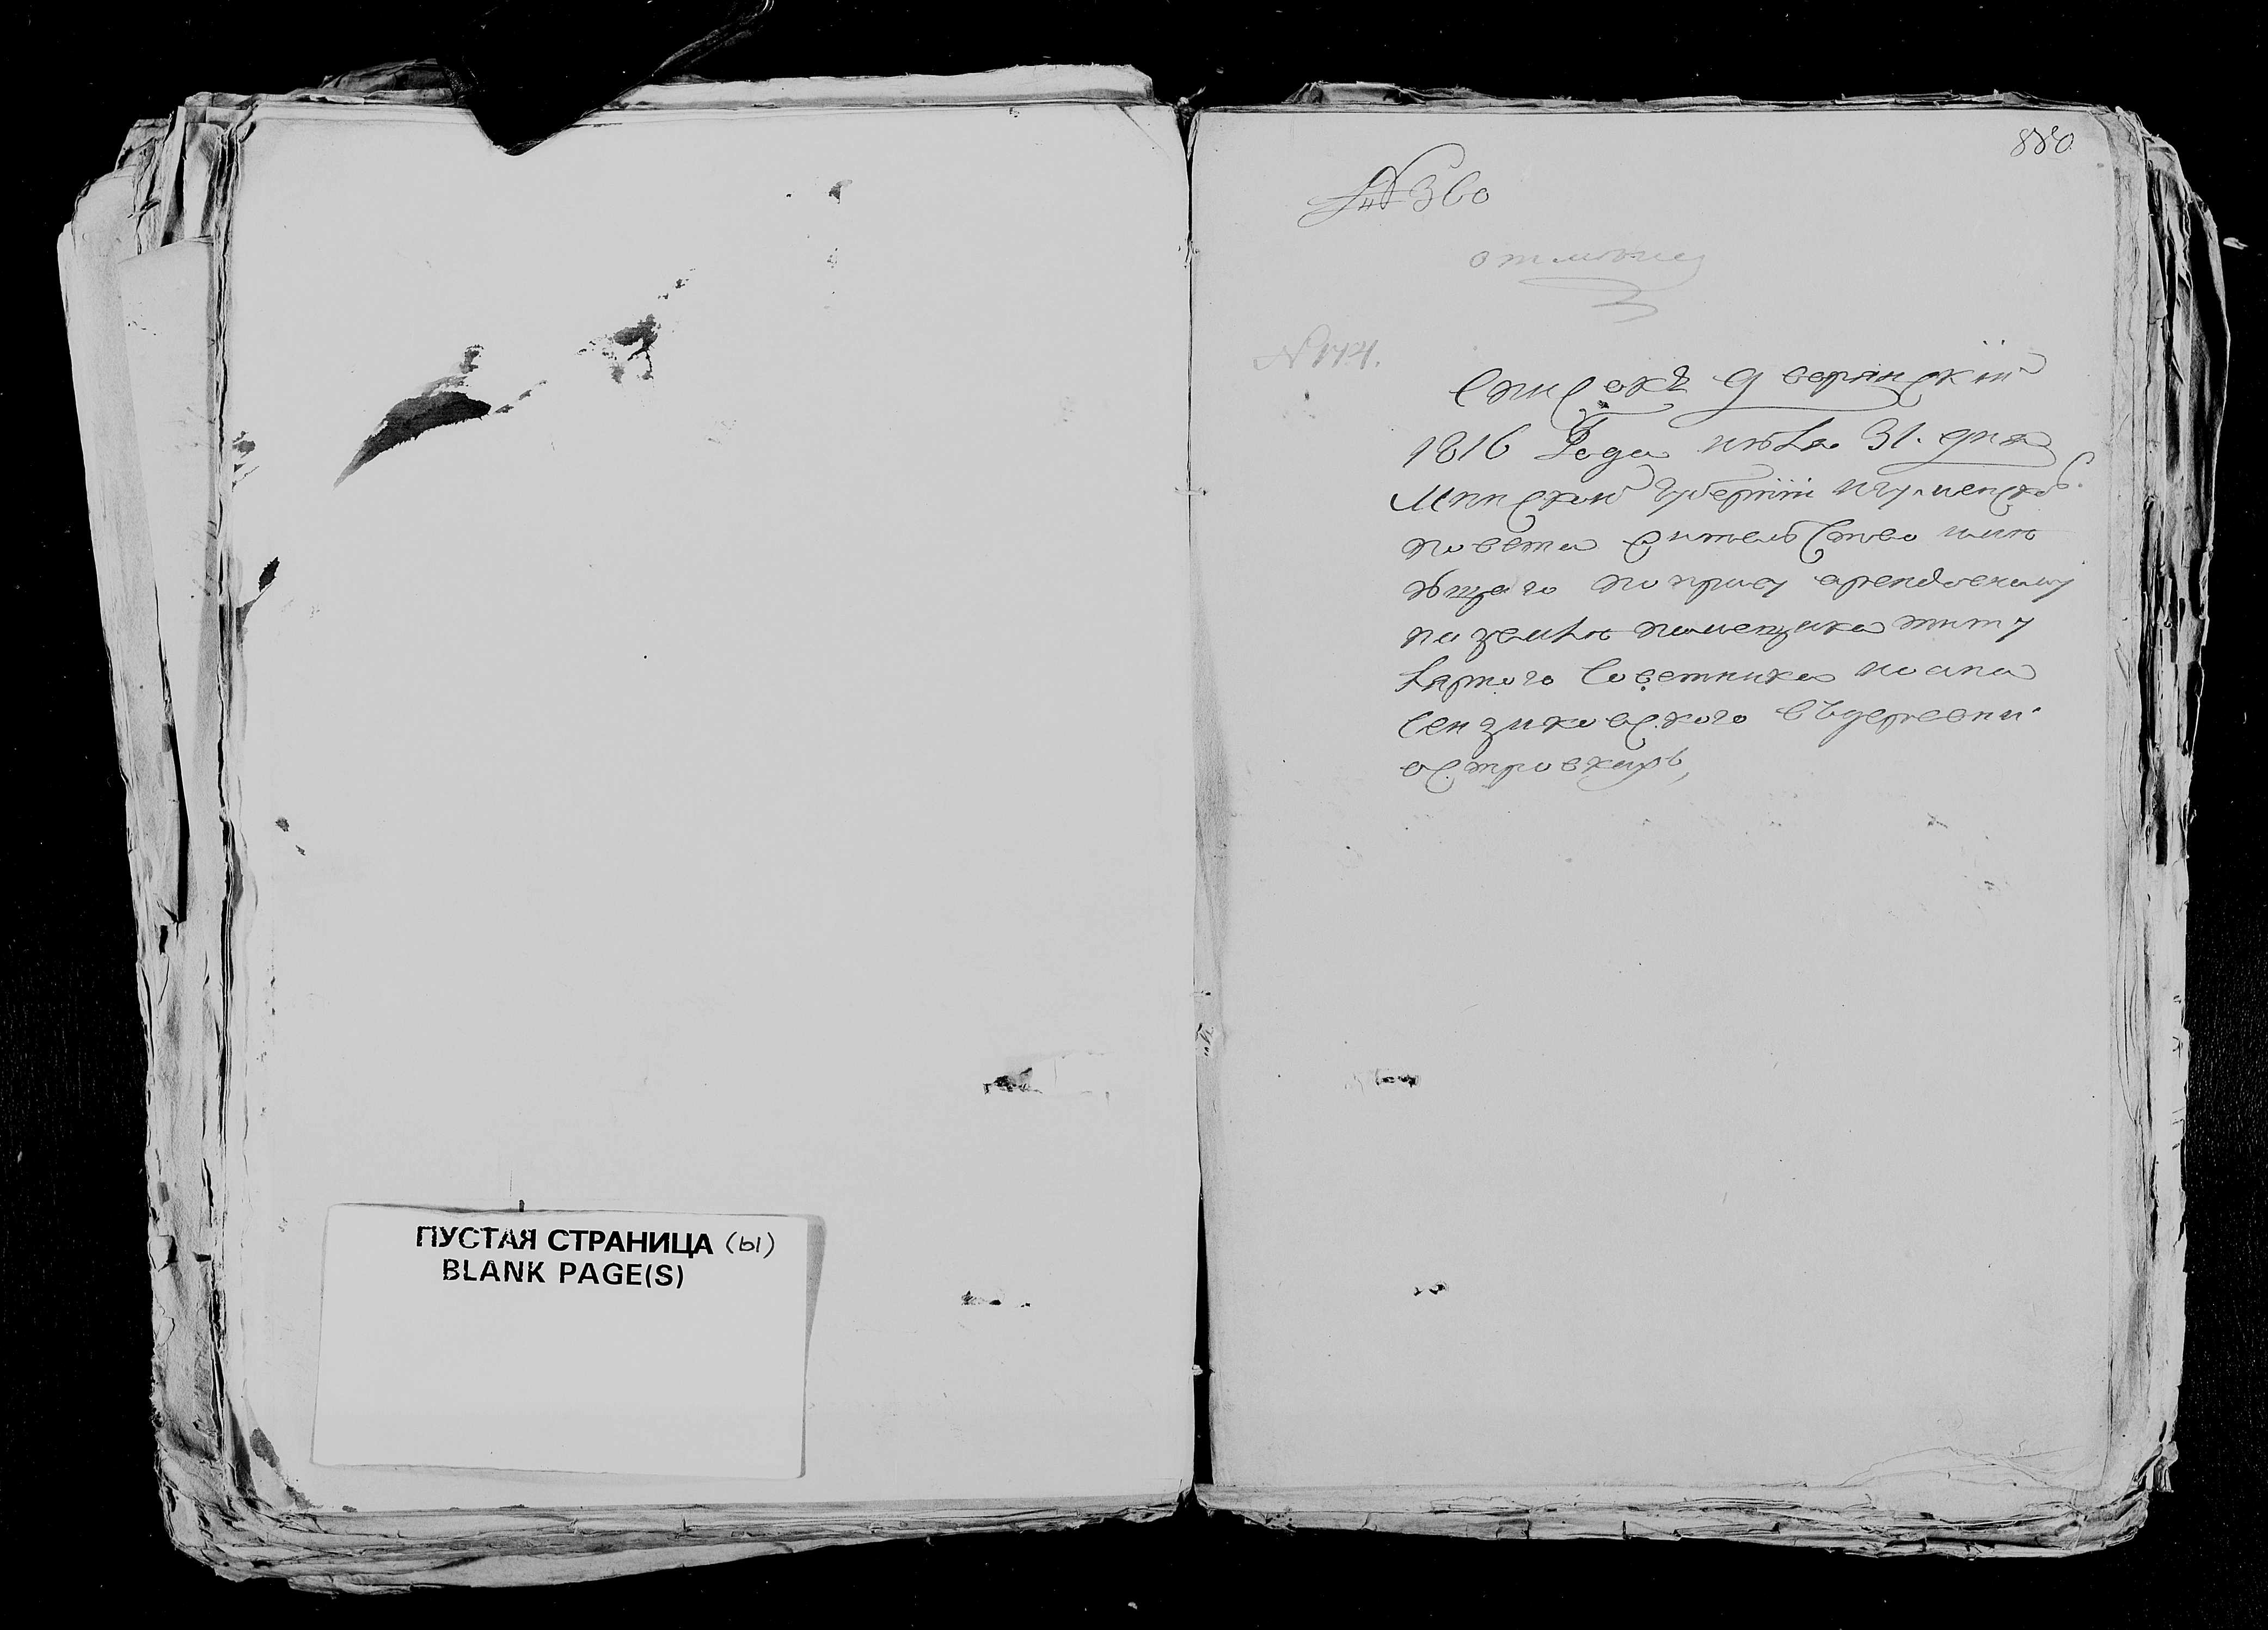 ПУСТАЯ СТРАНИЦА (ы)
BLANK PAGE(S)
880
№ 360
№ 144.
Списокъ дворянскій
1816 Года июля 31. дня
Минской губерніи игуменског.
повета жительство имѣ
ющаго по праву арендовному
на землѣ помещика титу
лярного Советника иоана
Сенжиковского въ деревни
островкахъ,